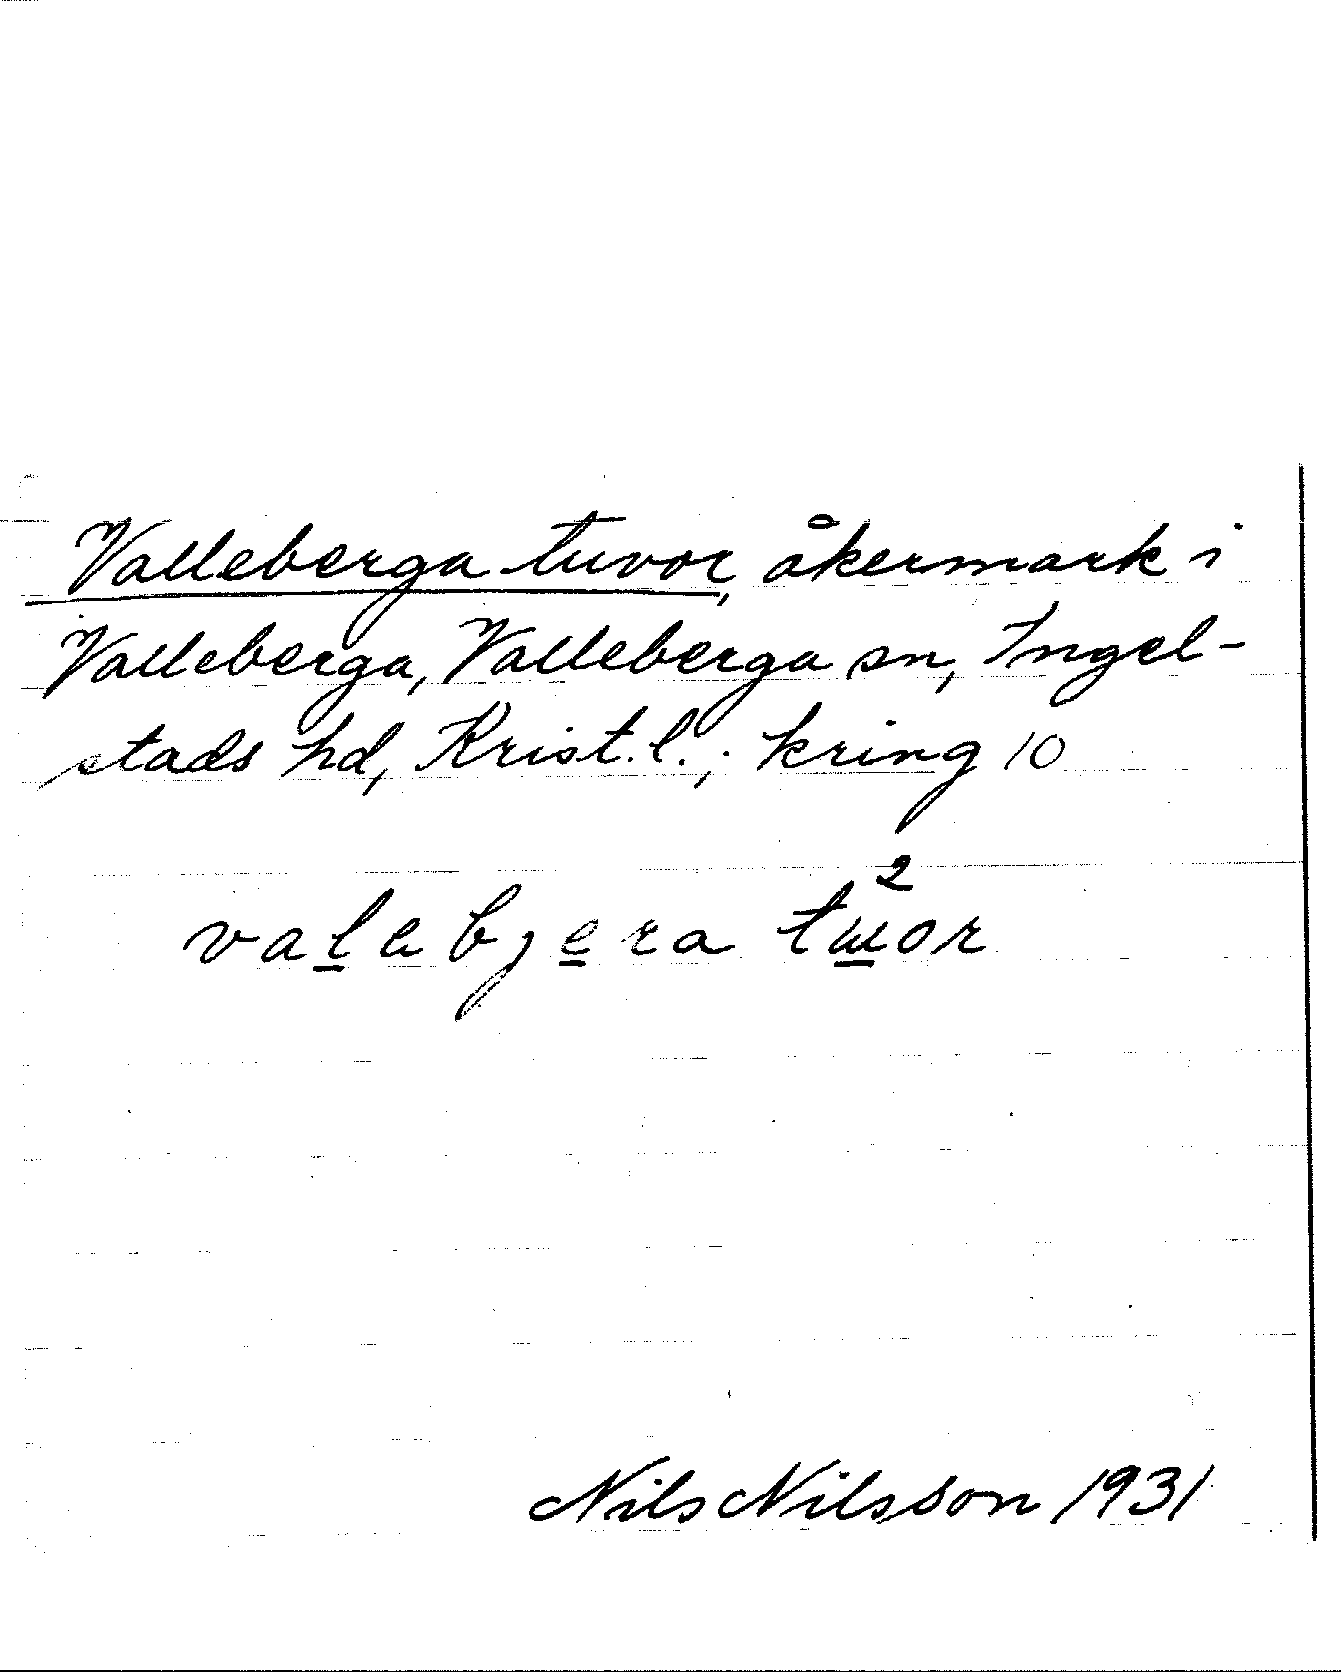 Valleberga tuvor, åkermark i
Valleberga, Valleberga sn, Ingel-
stads hd, Krist. l.; kring 10
valebjera tɯ²or
Nils Nilsson 1931